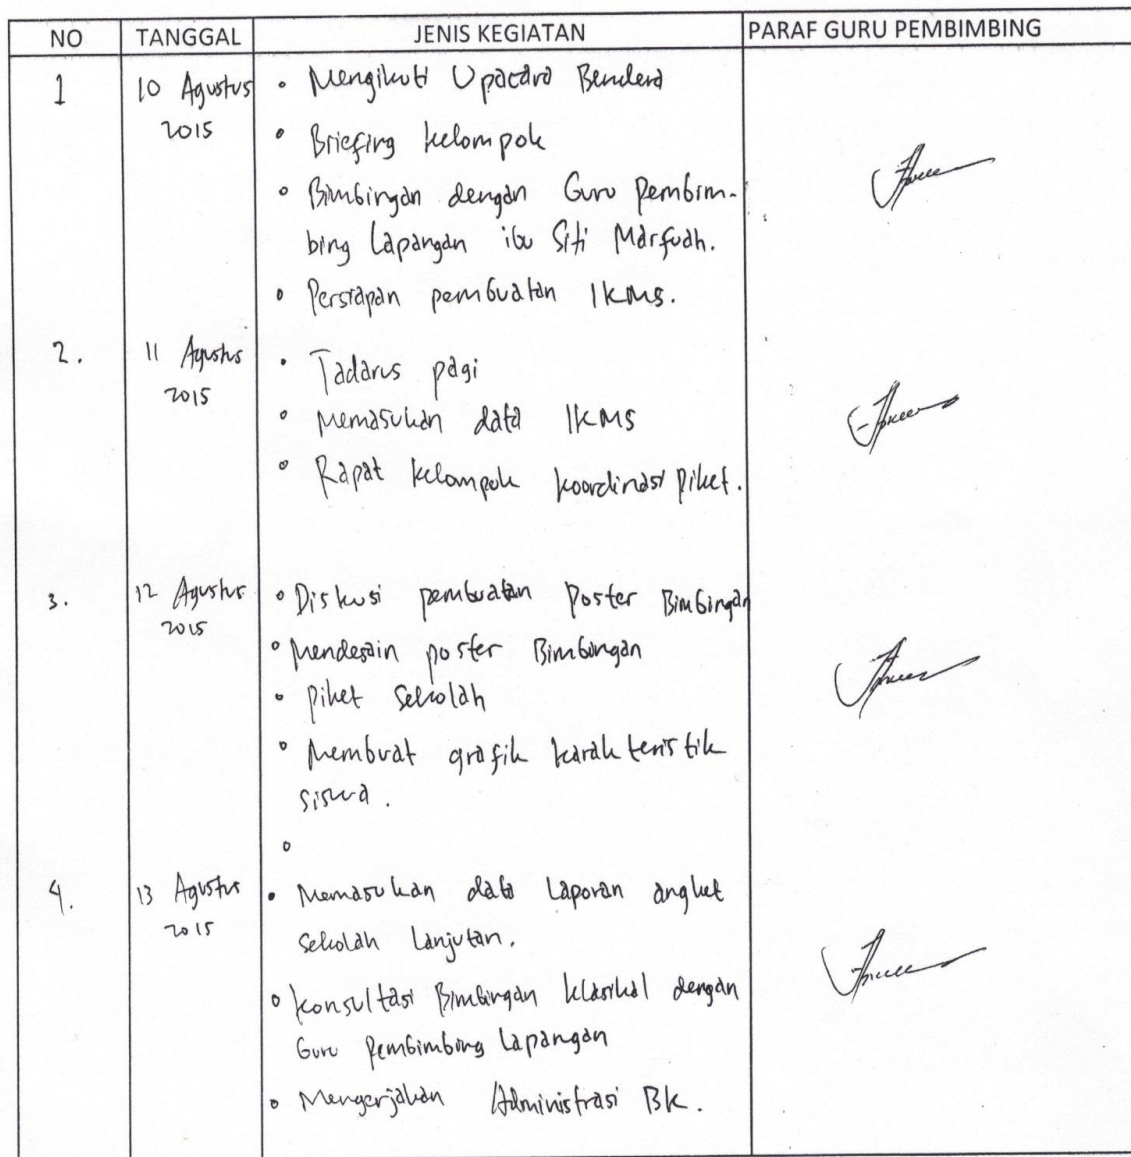 NO TANGGAL JENIS KEGIATAN PARAF GURU PEMBIMBING
1 10 Agustus • Mengikuti Upacara Bendera
2015 • Briefing kelompok
• Bimbingan dengan Guru Pembim-
bing Lapangan ibu Siti Marfuah.
• Persiapan pembuatan IKMS.
2. 11 Agustus • Tadarus pagi
2015 • Memasukan data IKMS
• Rapat kelompok koordinasi piket.
3. 12 Agustus • Diskusi pembuatan Poster Bimbingan
2015 • Mendesain poster Bimbingan
• Piket Sekolah
• Membuat grafik karakteristik
siswa.
•
4. 13 Agustus • Memasukan data Laporan angket
2015 sekolah Lanjutan.
• Konsultasi Bimbingan klasikal dengan
Guru Pembimbing Lapangan
• Mengerjakan Administrasi BK.